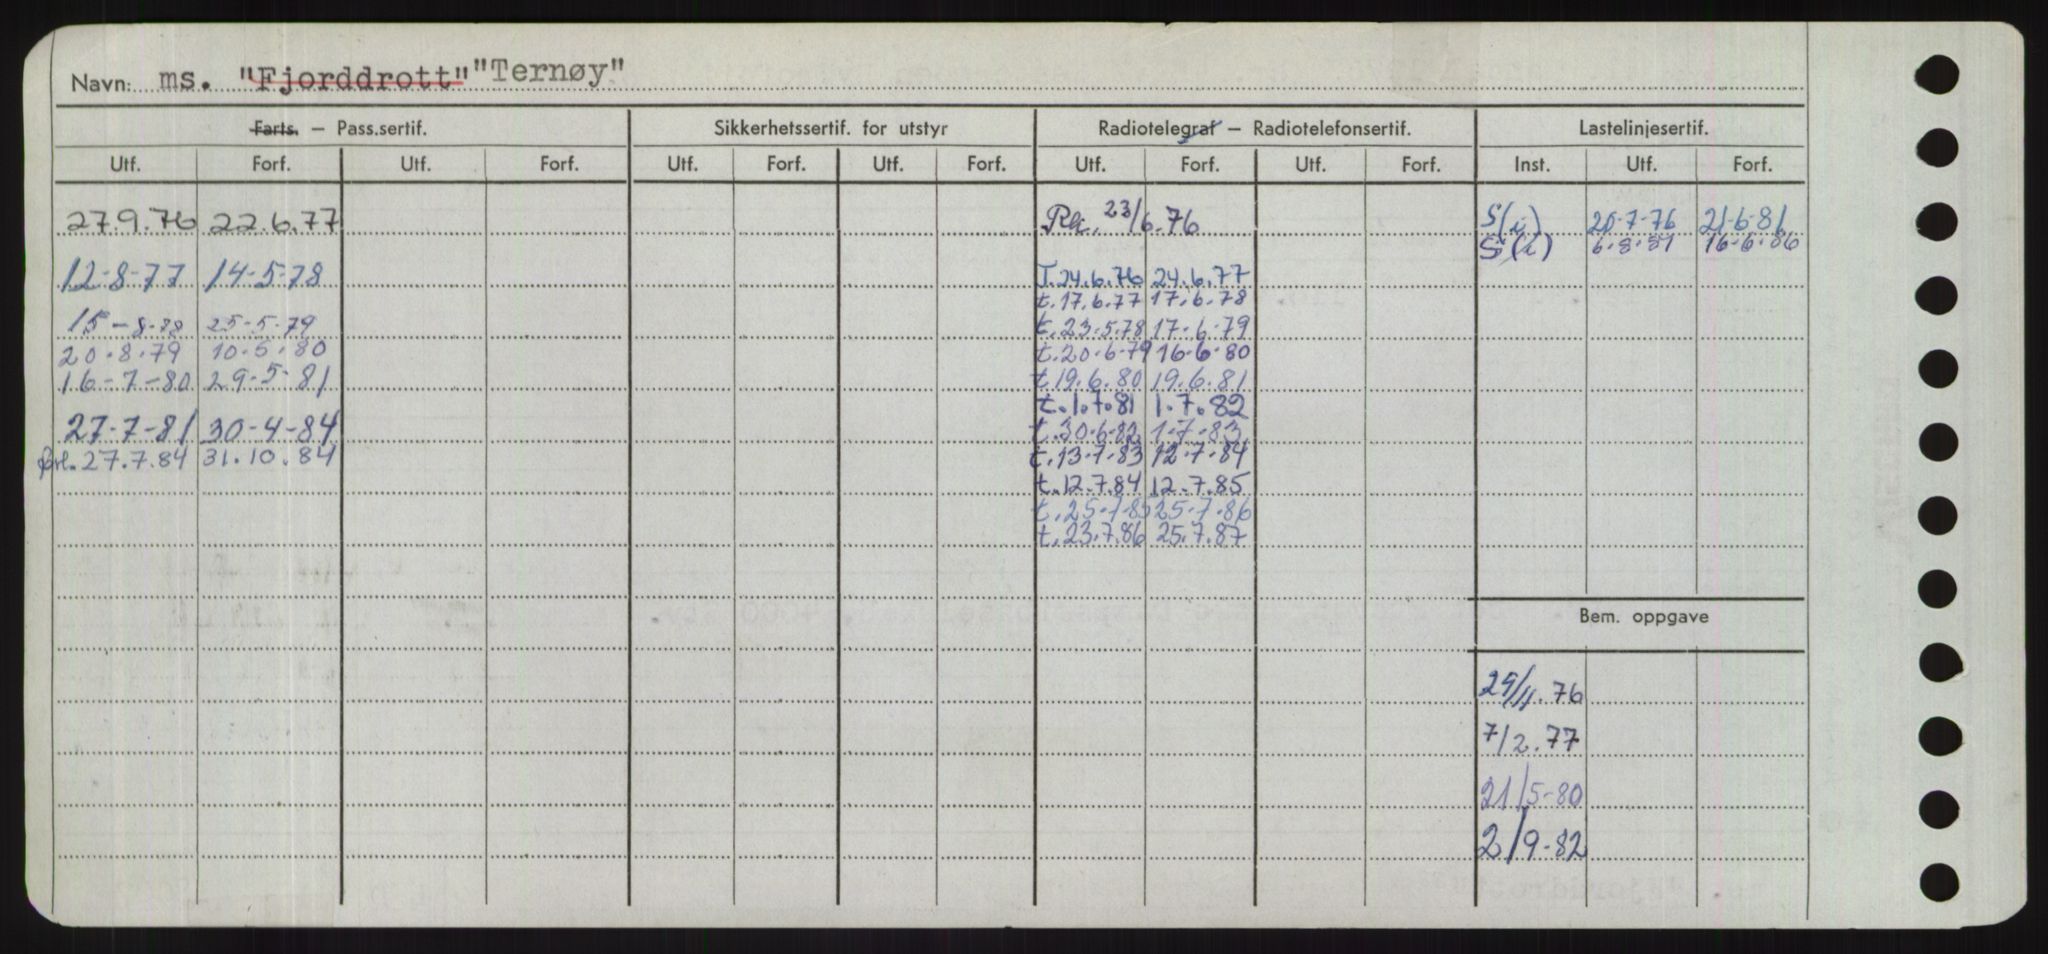 Navn: ms. "Fjorddrott" "Ternøy"
Farts. – Pass.sertif. Sikkerhetssertif. for utstyr Radiotelegraf – Radiotelefonsertif. Lastelinjesertif.
Utf. Forf. Utf. Forf. Utf. Forf. Utf. Forf. Utf. Forf. Utf. Forf. Inst. Utf. Forf.
27.9.76 22.6.77 23/6.76 S(i) 20-7-76 21-6-81
S(i) 6.8.81 16-6.86
12-8-77 14-5-78 T.24.6.76 24.6.77
t.17.6.77 17.6.78
15-8-78 25-5-79 t.23-5.78 17-6-79
20.8.79 10.5.80 t.20-6-79 16-6-80
16-7-80 29-5-81 t.19.6.80 19.6.81
t.1.7.81 1.7.82
27-7-81 30-4-84 t.30-6-82 1-7-83
27.7.84 31.10.84 t.13-7-83 12-7-84
t.12.7.84 12.7.85
t.25-7-85 25-7-86
t.23.7.86 25.7.87
Bem. oppgave
/11.76
7/2.77
21/5-80
2/9-82